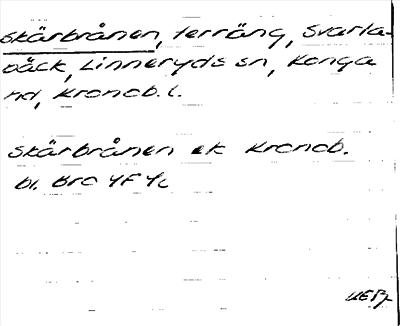 Skärbrånen, terräng, Svarta-
bäck, Linneryds sn, Konga
hd, Kronob. l.
Skärbrånen ek Kronob.
bl. Bro 4F